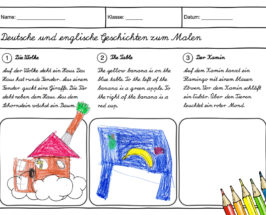 Name: Klasse: Datum:
Deutsche und englische Geschichten zum Malen
1 Die Wolke
Auf der Wolke steht ein Haus. Das
Haus hat runde Fenster. Aus einem
Fenster guckt eine Giraffe. Die Tür
steht neben dem Haus. Aus dem
Schornstein wächst ein Baum.
2 The Table
The yellow banana is on the
blue table. To the left of the
banana is a green apple. To
the right of the banana is a
red cup.
3 Der Kamin
Auf dem Kamin kniet ein
Flamingo mit einem blauen
Löwen. Vor dem Kamin schläft
ein Tiger. Über den Tieren
leuchtet ein roter Mond.